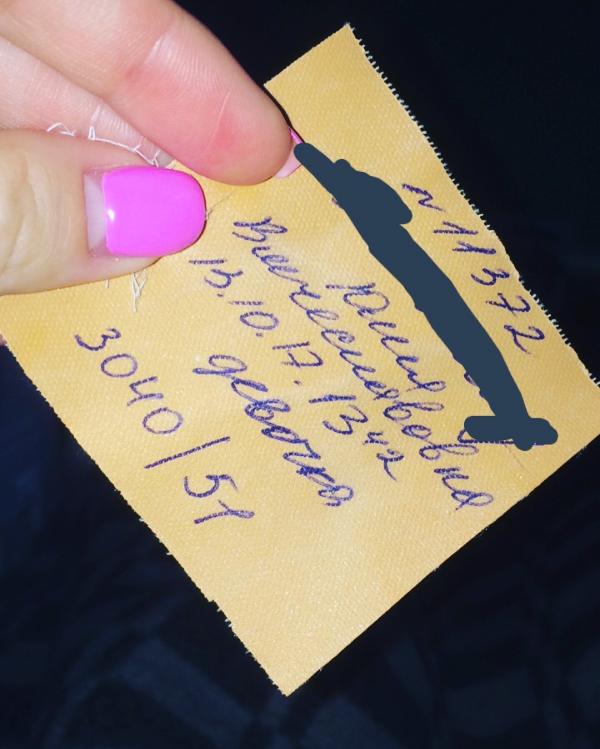 N 11372
Юлия
Вячеславовна
13.10.17. 13 42
девочка
3040/51